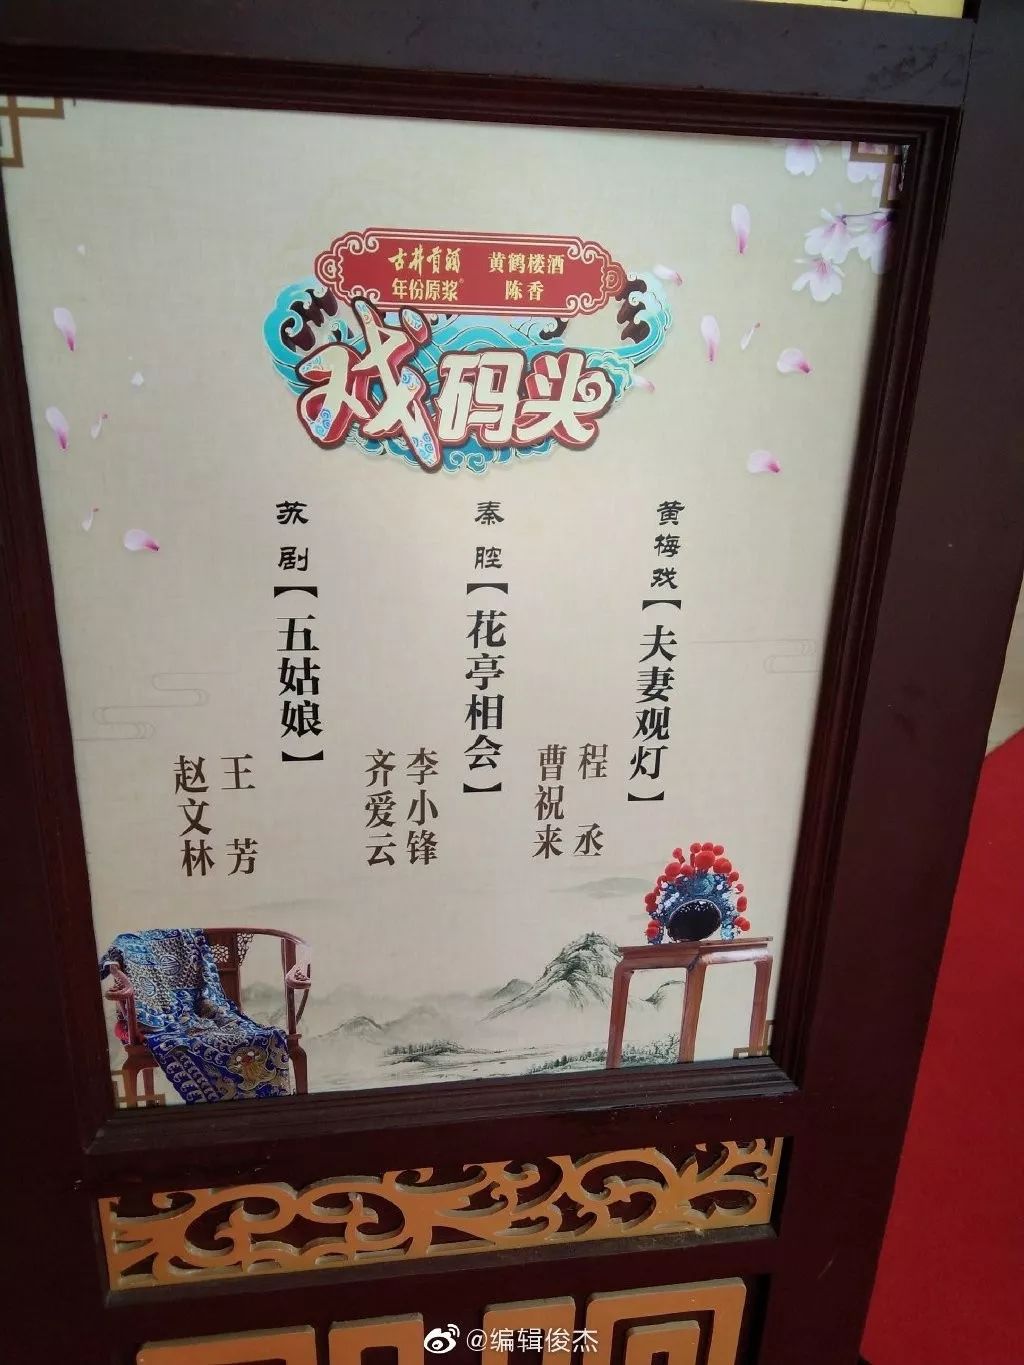 古井贡酒 黄鹤楼酒
年份原浆® 陈香
戏码头
黄梅戏【夫妻观灯】
程丞
曹祝来
秦腔【花亭相会】
李小锋
齐爱云
苏剧【五姑娘】
王芳
赵文林
@编辑俊杰